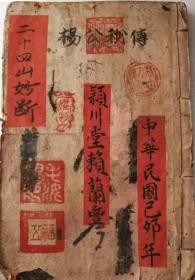 楊公秘傳
中華民國己卯年
穎川堂賴蘭
二十四山妙斷